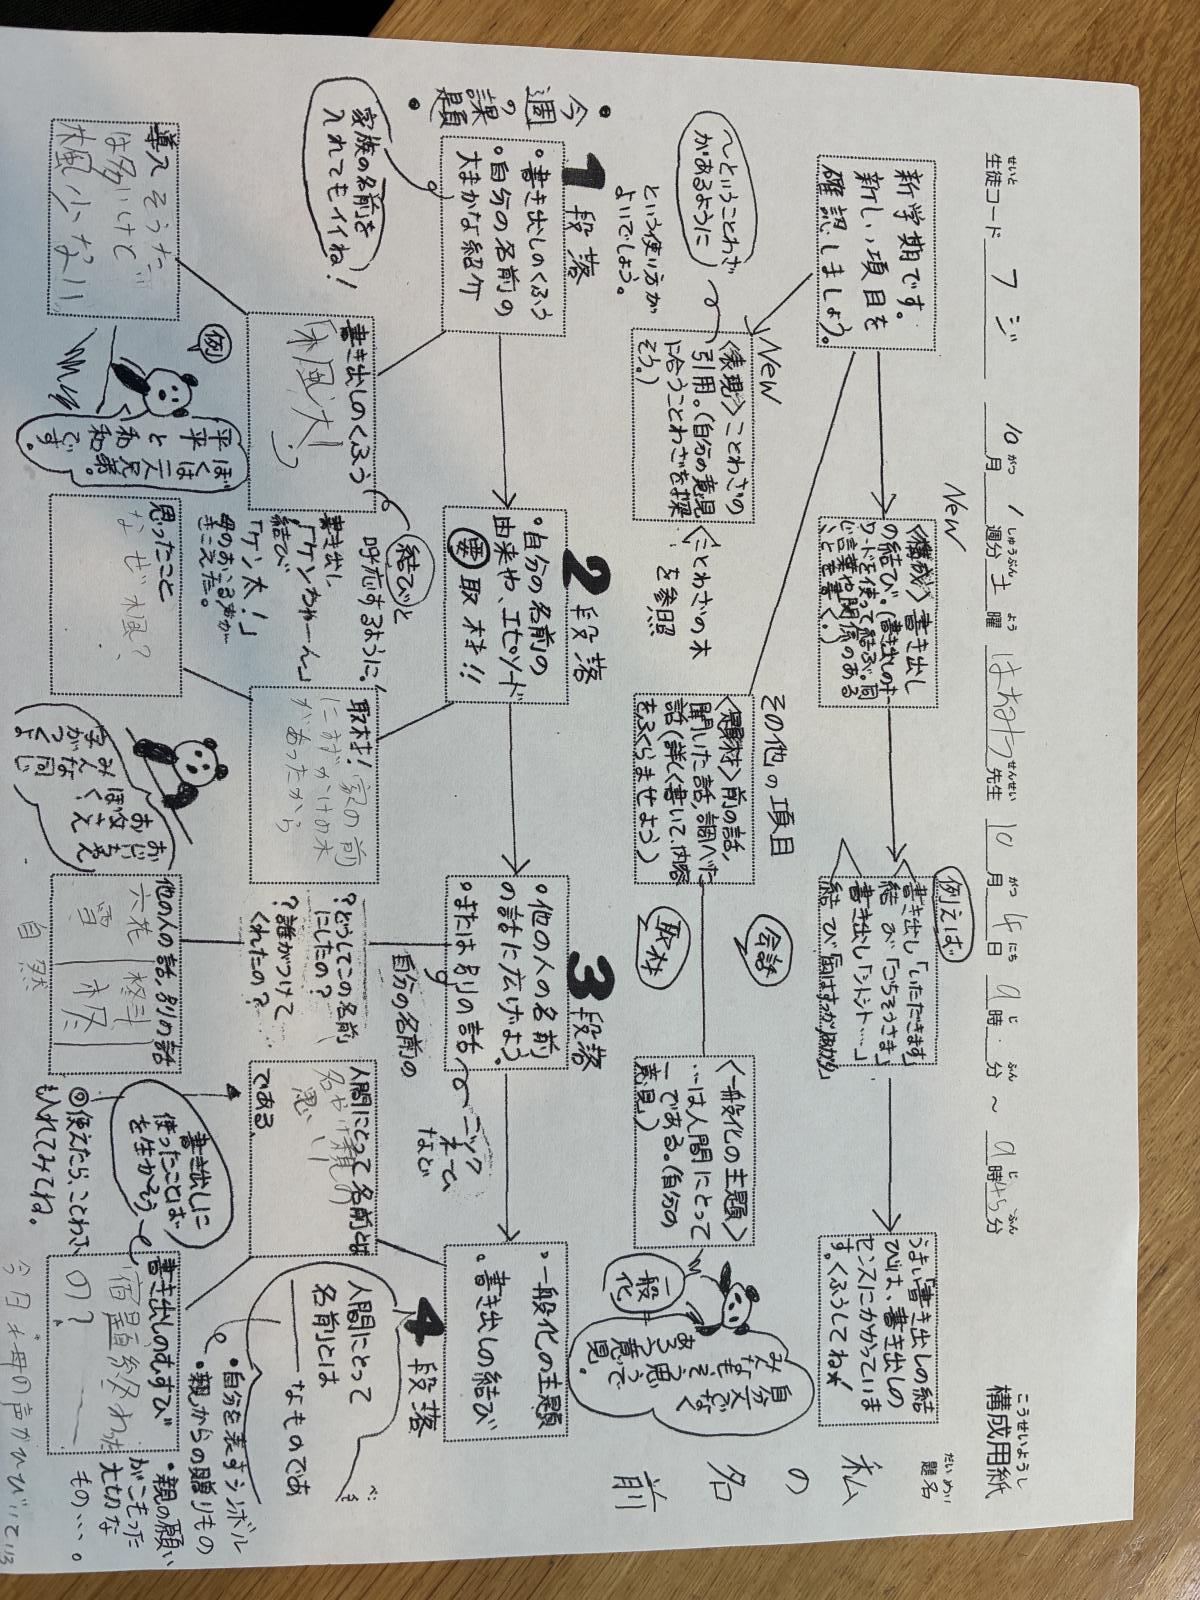 構成用紙
こうせいようし
題名
だいめい
私の名前
生徒コード フジ
せいと
10月1週分土曜
がつ しゅうぶん よう
先生
せんせい
10月4日9時 分～9時45分
がつ にち じ ふん じ ふん
新学期です。
新しい項目を
確認しましょう。
New
〈構成〉書き出し
の結び。(書き出しのキー
ワードを使って結ぶ。同
じ言葉や関係のある
ことを書く。)
例えば
書き出し「いただきます」
結び「ごちそうさま」
書き出し「シトシト…」
うまい「書き出しの結
び」は、書き出しの
センスにかかっていま
す。くふうしてね★
New
〈表現〉ことわざの
引用。(自分の意見
に合うことわざを探
そう。)
～ということわざ
があるように
という使い方が
よいでしょう。
〈ことわざの木
を参照
その他の項目
〈題材〉前の話,
聞いた話,調べた
話(詳しく書いて、内容
をふくらませよう)
会話
取材
〈一般化の主題〉
…は人間にとって
一である。(自分の
意見)
一般化
自分だけでなく
みんなもそう思う
であろう意見。
・今週の課題・
1段落
・書き出しのくふう
・自分の名前の
大まかな紹介
家族の名前を
入れてもイイね!
2段落
・自分の名前の
由来や、エピソード
要取材!!
3段落
・他の人の名前
の話に広げよう。
・または別の話
自分の名前の
ニックネーム
など
4段落
・一般化の主題
・書き出しの結び
書き出しのくふう
結びと
呼応するように!
書き出し
「ケンちゃーん」
結び
「ケン太!」
母のあきる声が
きこえた。
取材! 家の前
にすずかけの木
があったから
?どうしてこの名前
にしたの?
?誰がつけて
くれたの?
人間にとって名前とは
である。
人間にとって
名前とは
―――なものであ
る
・自分を表すシンボル
・親からの贈りもの
・親の願い
がこもった
大切な
もの…。
導入 そうたが
は多いけど
楓少ない
例
ぼくは二人兄弟
平平と和和です。
思ったこと
なぜ楓?
みんな同じ
字がつくよ
他の人の話,別の話
六花 柊斗
雪 柊
自然
書き出しに
使ったことば
を生かそう
◎使えたら、ことわざ
も入れてみてね。
書き出しのむすび
宿題終わった
の?
今日も母の声がひびいている